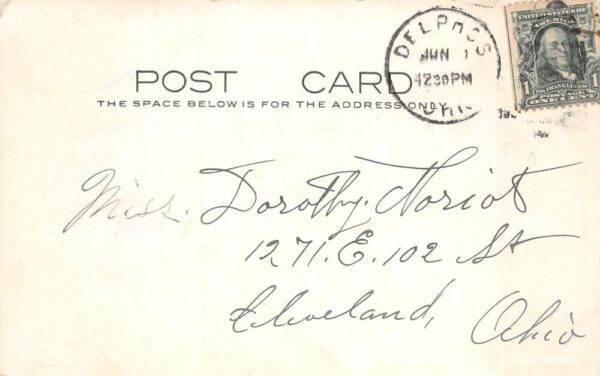 DELPHOS
JUN 1
1230PM
OHIO
UNITED STATES OF AMERICA
1 1
POSTAGE
ONE CENT
POST CARD
THE SPACE BELOW IS FOR THE ADDRESS ONLY
Miss. Dorothy. Noriot
1271. E. 102 St
Cleveland,
Ohio